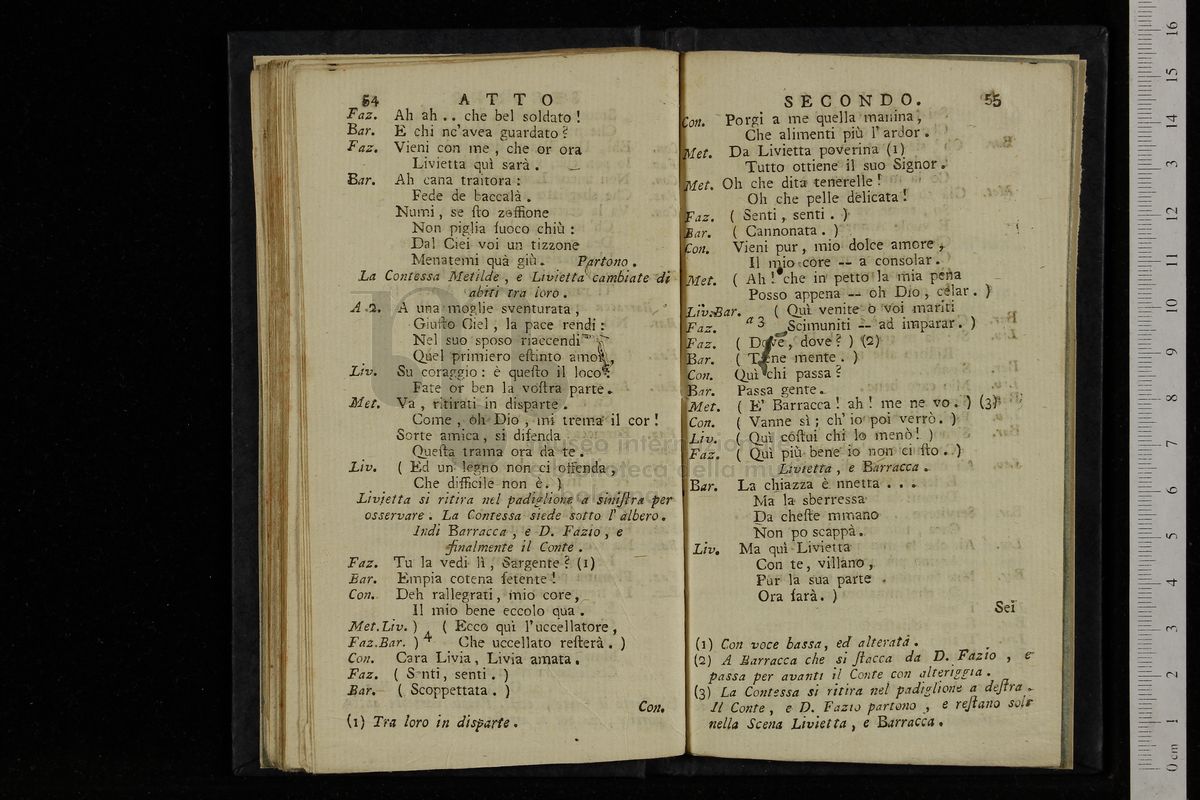 54 ATTO
Faz. Ah ah .. che bel soldato !
Bar. E chi nc'avea guardato ?
Faz. Vieni con me , che or ora
Livietta quì sarà .
Bar. Ah cana traitora :
Fede de baccalà .
Numi , se ſto zeffione
Non piglia fuoco chiù :
Dal Ciei voi un tizzone
Menatemi quà giù . Partono .
La Contessa Metilde , e Livietta cambiate di
abiti tra loro .
A 2. A una moglie sventurata ,
Giuſto Ciel , la pace rendi :
Nel suo sposo riaccendi
Quel primiero eſtinto amor ,
Liv. Su coraggio : è queſto il loco :
Fate or ben la voſtra parte .
Met. Va , ritirati in disparte .
Come , oh Dio , mi trema il cor !
Sorte amica , si difenda
Queſta trama ora da te .
Liv. ( Ed un legno non ci offenda ,
Che difficile non è . )
Livietta si ritira nel padiglione a siniſtra per
osservare . La Contessa siede sotto l' albero .
Indi Barracca , e D. Fazio , e
finalmente il Conte .
Faz. Tu la vedi lì , Sargente ? (1)
Bar. Empia cotena fetente !
Con. Deh rallegrati , mio core ,
Il mio bene eccolo qua .
Met.Liv. ) ( Ecco quì l'uccellatore ,
Faz.Bar. ) 4 Che uccellato reſterà . )
Con. Cara Livia , Livia amata .
Faz. ( S nti , senti . )
Bar. ( Scoppettata . )
Con.
(1) Tra loro in disparte .
SECONDO. 55
Con. Porgi a me quella manina ,
Che alimenti più l' ardor .
Met. Da Livietta poverina (1)
Tutto ottiene il suo Signor .
Met. Oh che dita tenerelle !
Oh che pelle delicata !
Faz. ( Senti , senti . )
Bar. ( Cannonata . )
Con. Vieni pur , mio dolce amore ,
Il mio core -- a consolar .
Met. ( Ah ! che in petto la mia pena
Posso appena -- oh Dio , celar . )
Liv.Bar. ( Quì venite o voi mariti
Faz. a 3 Scimuniti -- ad imparar . )
Faz. ( Dove , dove ? ) (2)
Bar. ( Tiene mente . )
Con. Quì chi passa ?
Bar. Passa gente .
Met. ( E' Barracca ! ah ! me ne vo . ) (3)
Con. ( Vanne sì ; ch' io poi verrò . )
Liv. ( Quì coſtui chi lo menò ! )
Faz. ( Quì più bene io non ci ſto . )
Livietta , e Barracca .
Bar. La chiazza è nnetta . . .
Ma la sberressa
Da cheſte mmano
Non po scappà .
Liv. Ma quì Livietta
Con te , villano ,
Pur la sua parte
Ora farà . )
Sei
(1) Con voce bassa , ed alterata .
(2) A Barracca che si ſtacca da D. Fazio , e
passa per avanti il Conte con alteriggia .
(3) La Contessa si ritira nel padiglione a deſtra .
Il Conte , e D. Fazio partono , e reſtano soli
nella Scena Livietta , e Barracca .
museo internazionale
biblioteca della musica
0 cm 1 2 3 4 5 6 7 8 9 10 11 12 13 14 15 16